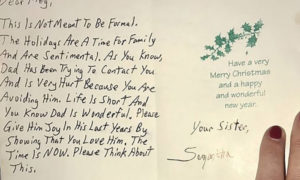 This Is Not Meant To Be Formal.
The Holidays Are A Time For Family
And Are Sentimental. As You Know,
Dad Has Been Trying To Contact You
And Is Very Hurt Because You Are
Avoiding Him. Life Is Short And
You Know Dad Is Wonderful, Please
Give Him Joy In His Last Years By
Showing That You Love Him. The
Time Is NOW. Please Think About
This.
Have a very
Merry Christmas
and a happy
and wonderful
new year.
Your Sister,
Samantha